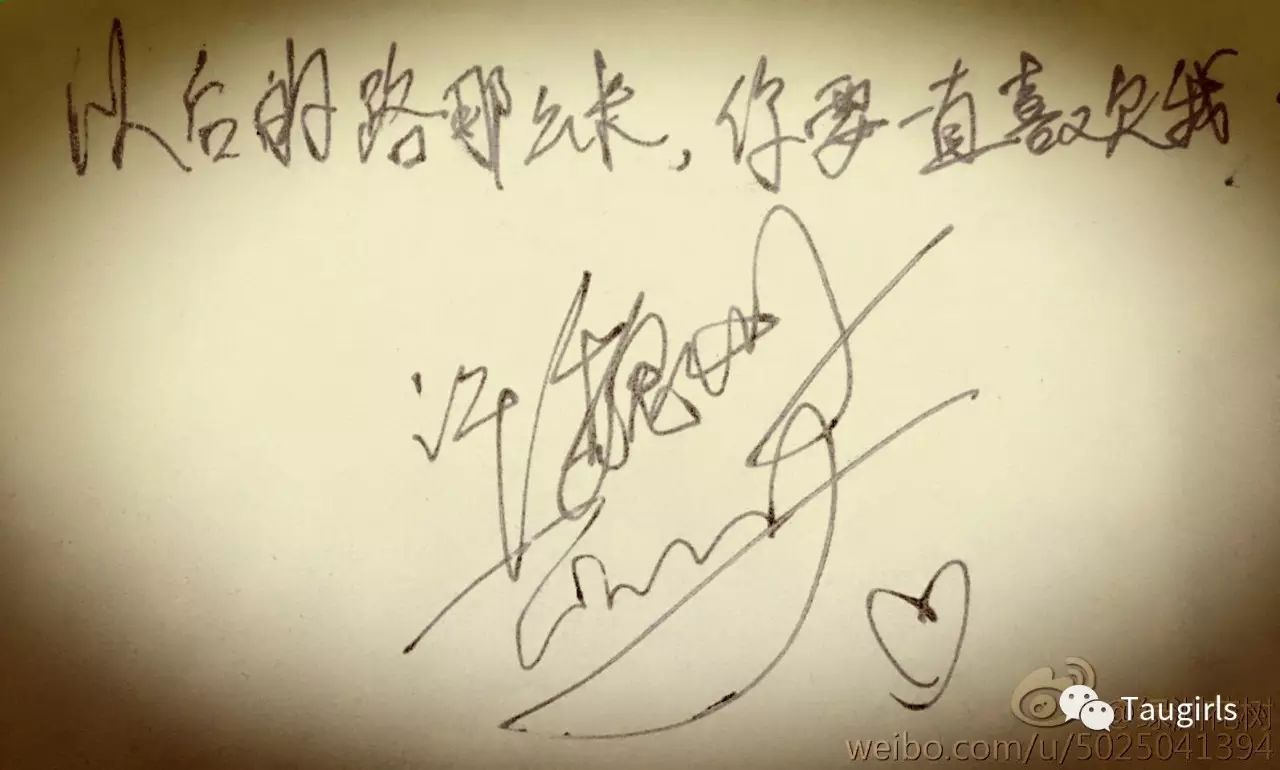 以后的路那么长,你要一直喜欢我.
许魏洲
Taugirls
weibo.com/u/5025041394